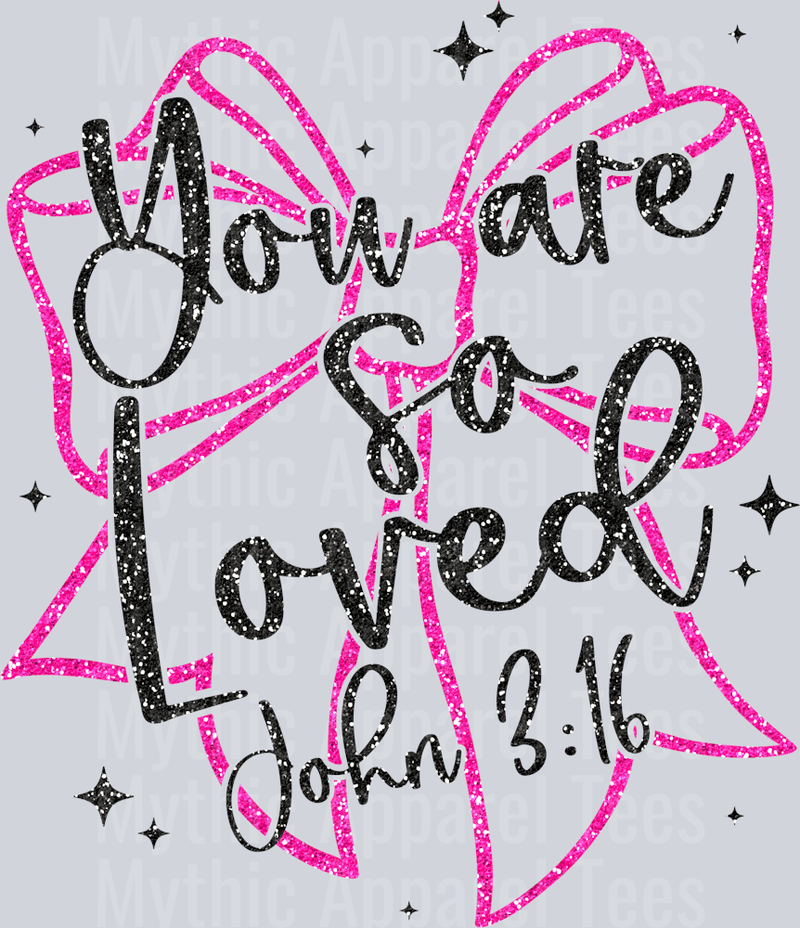 Mythic Apparel Tees
Mythic Apparel Tees
You are
Mythic Apparel Tees
Mythic Apparel Tees
so
Mythic Apparel Tees
Loved
Mythic Apparel Tees
Mythic Apparel Tees
Mythic Apparel Tees
John 3:16
Mythic Apparel Tees
Mythic Apparel Tees
Mythic Apparel Tees